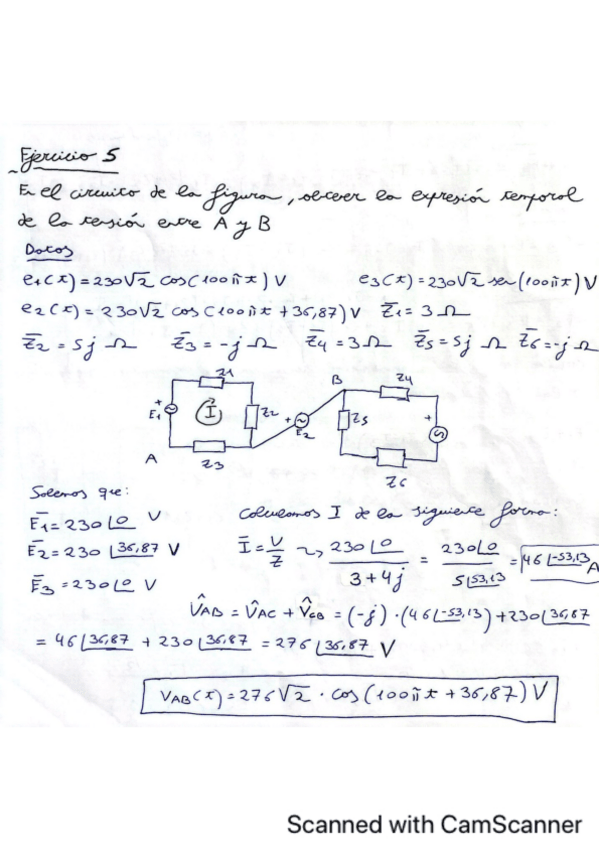 Ejercicio 5
En el circuito de la figura, obtener la expresión temporal
de la tensión entre A y B
Datos
e1(t)=230√2 cos(100πt) V e3(t)=230√2 sen(100πt)V
e2(t)=230√2 cos(100πt+36,87)V Z̄1=3Ω
Z̄2=5j Ω Z̄3=-j Ω Z̄4=3Ω Z̄5=5j Ω Z̄6=-j Ω
Z1
B
Z4
+
E1
I
Z2
+
E2
Z5
+
A
Z3
Z6
Sabemos que:
Ē1=230∠0 V
Ē2=230∠36,87 V
Ē3=230∠0 V
Calculamos I de la siguiente forma:
Ī=V/Z ⇝ 230∠0/3+4j = 230∠0/5∠53,13 = 46∠-53,13 A
V̂AB = V̂AC + V̂CB = (-j)·(46∠-53,13)+230∠36,87
= 46∠36,87 + 230∠36,87 = 276∠36,87 V
VAB(t)=276√2 · cos(100πt+36,87)V
Scanned with CamScanner